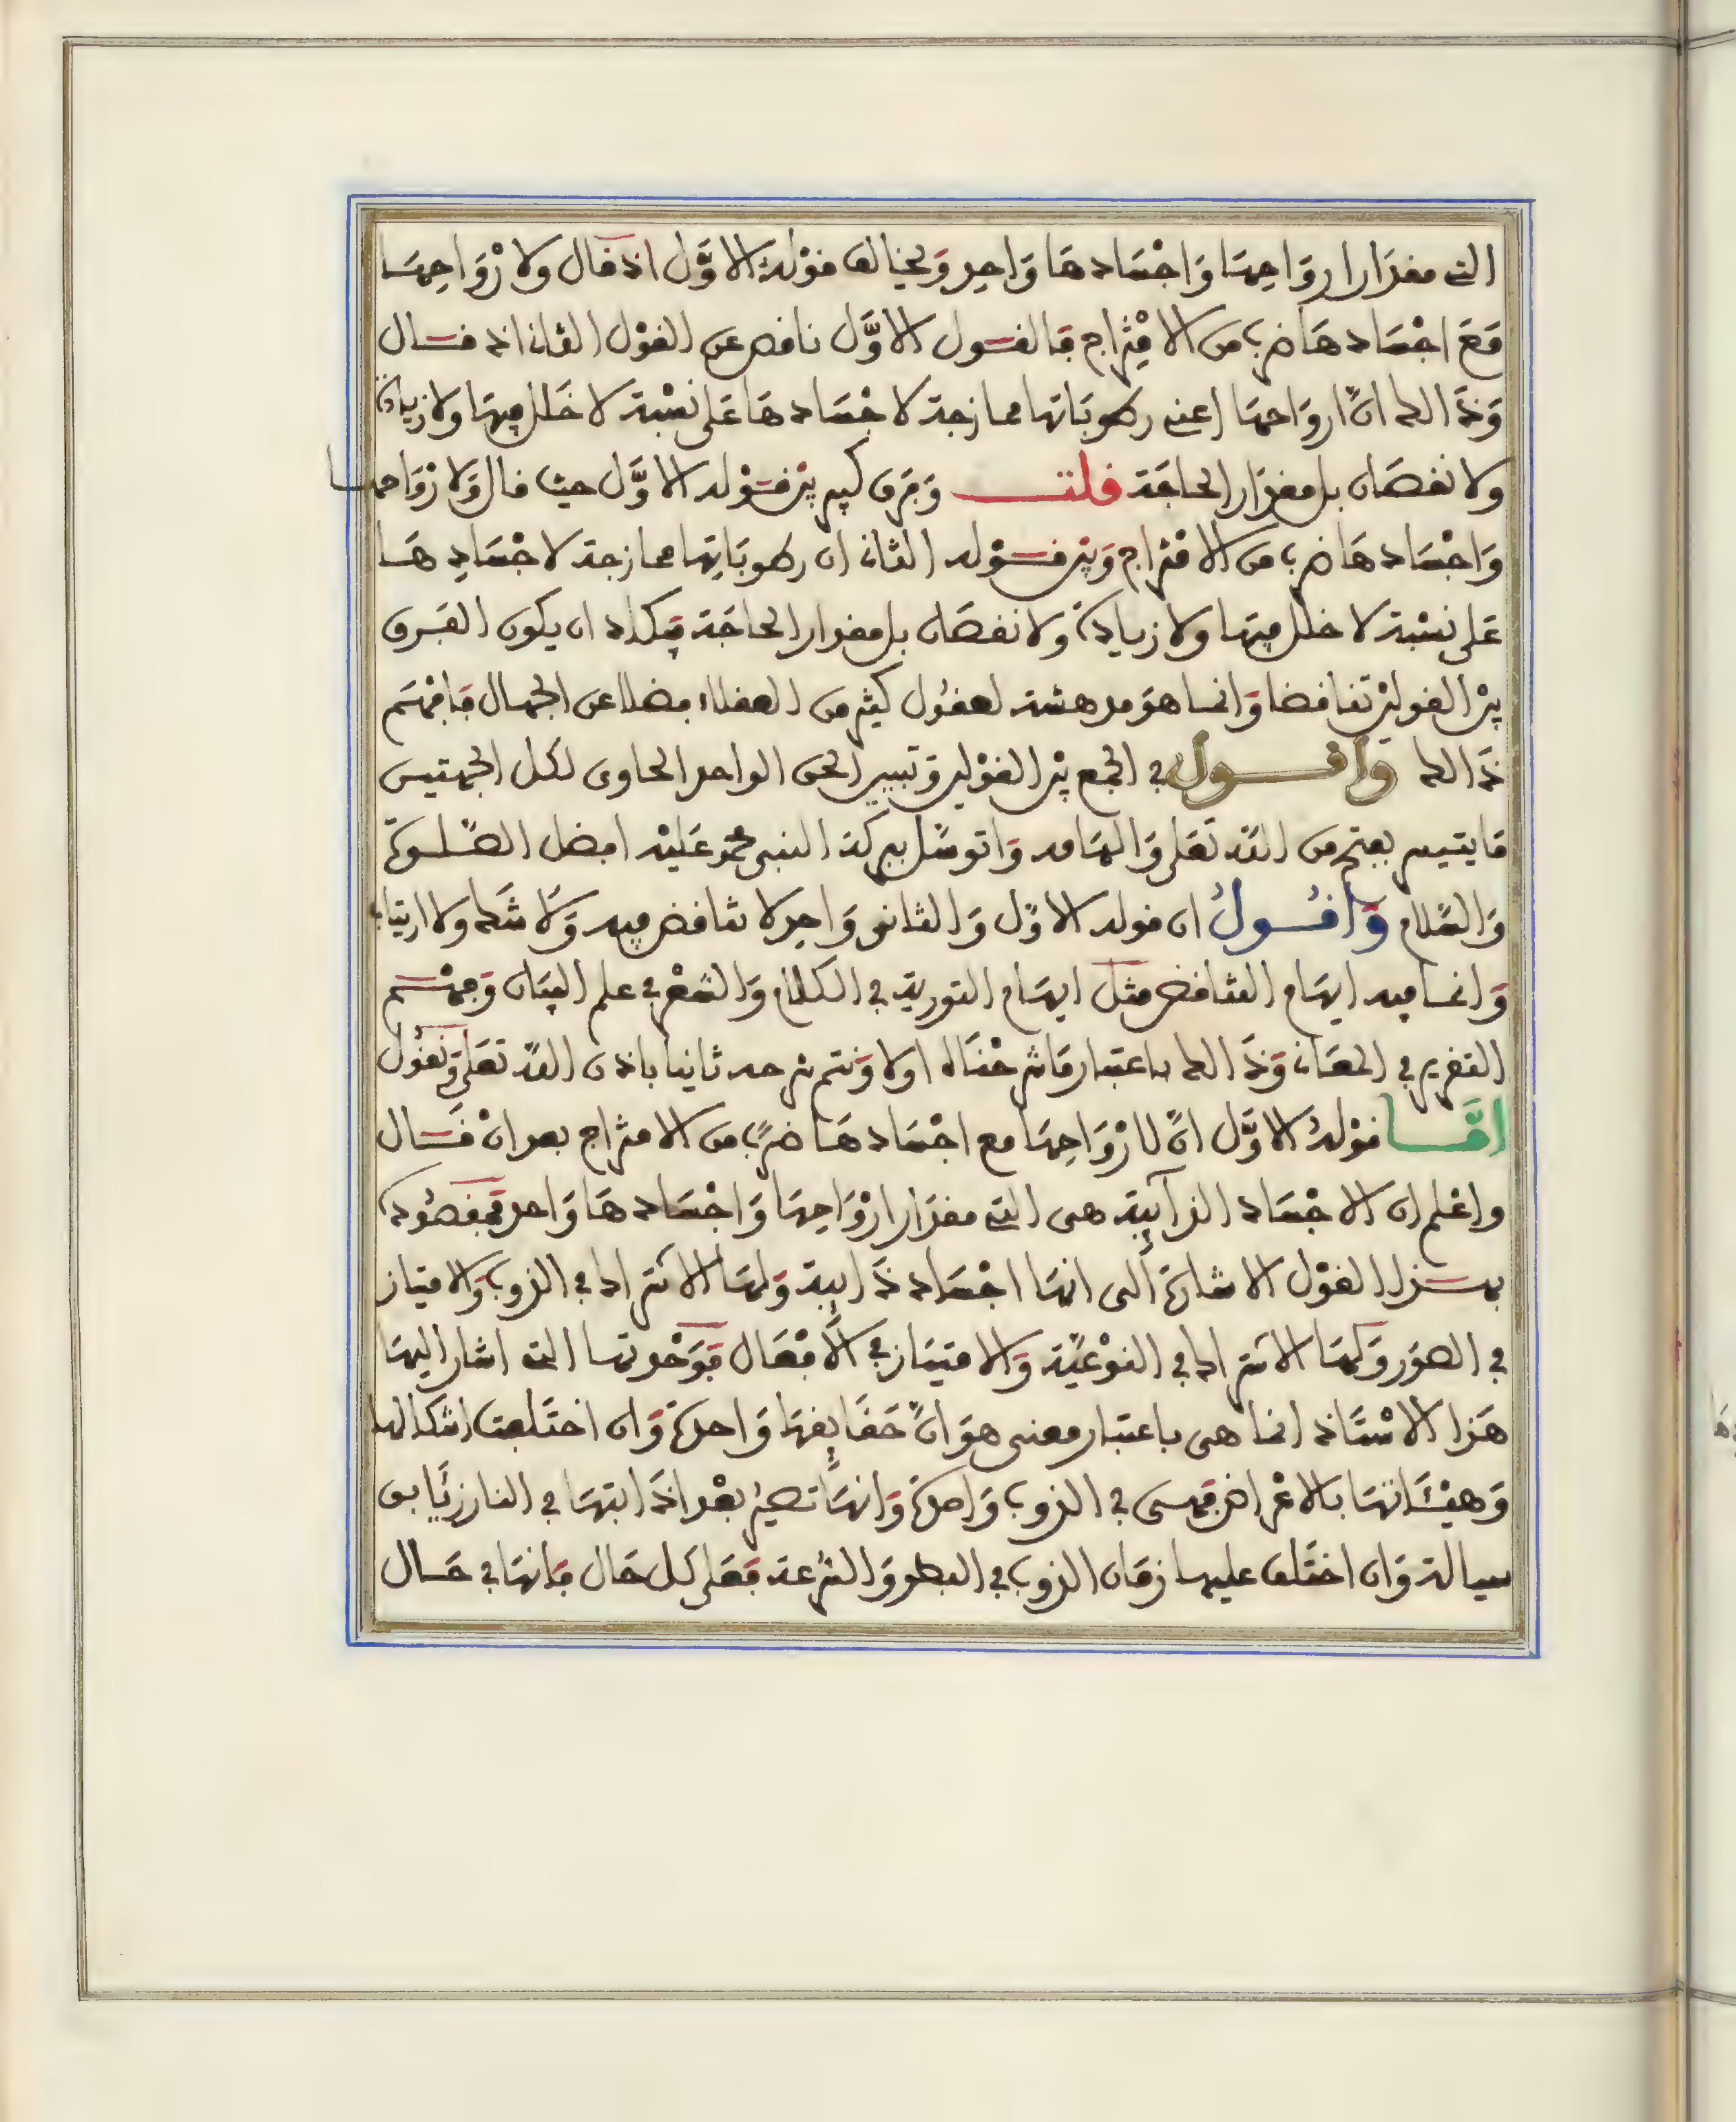 التى مقدار ارواحها وَاجْسَادهَا وَاحِد وَيخالف قوْلهُ الاوَّل اذ قال ولارْوَاحِهَا
مَعَ اجْسَادهَا ضرب من الامْتِزاج فالقول الاوَّل ناقص عن القوْل الثانى اذ قال
وَذَالك انَّ ارواحهَا اعنى رطوبَاتها ممازجة لاجْسَادهَا عَلى نسْبة لا خَلل فيهَا ولا زيادة
ولا نقصَان بل مقدار الحاجَة قلت وَفرق كبير بيْن قوْله الاوَّل حيث قال وَلارْوَاحها
وَاجْسَادهَا ضرب من الامْتزاج وَبيْن قوْله الثانى ان رطوبَاتِها ممازجة لاجْسَادِهَا
عَلى نسْبة لا خلل فيهَا ولا زيادة ولا نقصَان بل مقدار الحاجَة فكاد ان يكون الفرق
بيْن القوليْن تناقضا وَانما هوَ مدهشة لعقُول كثيْر من العقلاء فضلا عن الجهال فافهَم
ذَالك وَاقول في الجمع بيْن القوْلين وَتبيين الحق الواحد الحاوى لكل الجهتين
مَا يتيسر بفتح من اللّه تعَلى وَالهَامه وَاتوسَّل ببركة النبى محمد عَليْه افضل الصَّلوة
وَالسَّلام وَاقُولُ ان قوله الاوَّل وَالثانى وَاحِد لا تناقض فيه وَلا شَك ولا ارتياب
وَانما فيه ايهَام التناقض مثل ايهَام التورية في الكلام وَالشعْر في علم البيَان وَفهْم
التقرير في المعَانى وَذَالك باعتبار مَا شرحْنَاه اولا وَنتمم شرحه ثانيا باذن اللّه تعَلى وَنقُول
امَّا قوْلهُ الاوَّل انَّ لارْوَاحِهَا مع اجْسَادهَا ضرب من الامتزاج بعد انْ قَال
واعْلم ان الاجْسَاد الذآئِبة هى التى مقدَار ارْوَاحِهَا وَاجْسَادهَا وَاحد فمقصُوده
بهذا القوْل الاشارة الى انهَا اجْسَاد ذَائِبة وَلهَا الاشتراك في الذوب وَالامتياز
في الصوَر وَكمَا الاشتراك في النوْعيَّة وَالامتيَاز في الافعَال فوَحْدتها التى اشار اليهَا
هَذا الاسْتَاذ انما هى باعتبار معنى هوَ انَّ حَقَائِقهَا وَاحدة وَان اختَلفت اشكالها
وَهيْئَاتهَا بالاعْراض فهى في الذوب وَاحدة وَانهَا تصيْر بعْد اذَابتهَا في النار زئَابق
سيالة وَان اختَلف عليها زمَان الذوب في البطو وَالسُّرعة فعَلى كل حَال فانهَا في حَال